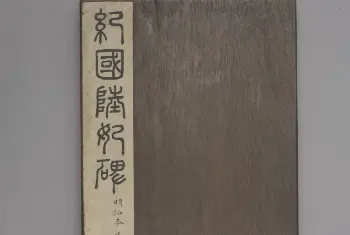 紀國陸妃碑
明拓本